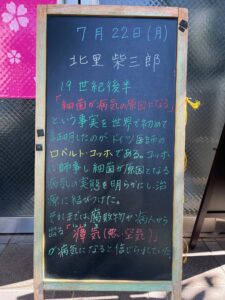 7月22日(月)
北里 柴三郎
19世紀後半
「細菌が病気の原因になる」
という事実を世界で初めて
証明したのがドイツ医師の
ロベルト・コッホである。コッホ
に師事し細菌が原因となる
病気の実態を明らかにし治
療に結びつけた。
それまでは、腐敗物や病人から
出る「瘴気(悪い空気)」
が病気になると信じられていた。